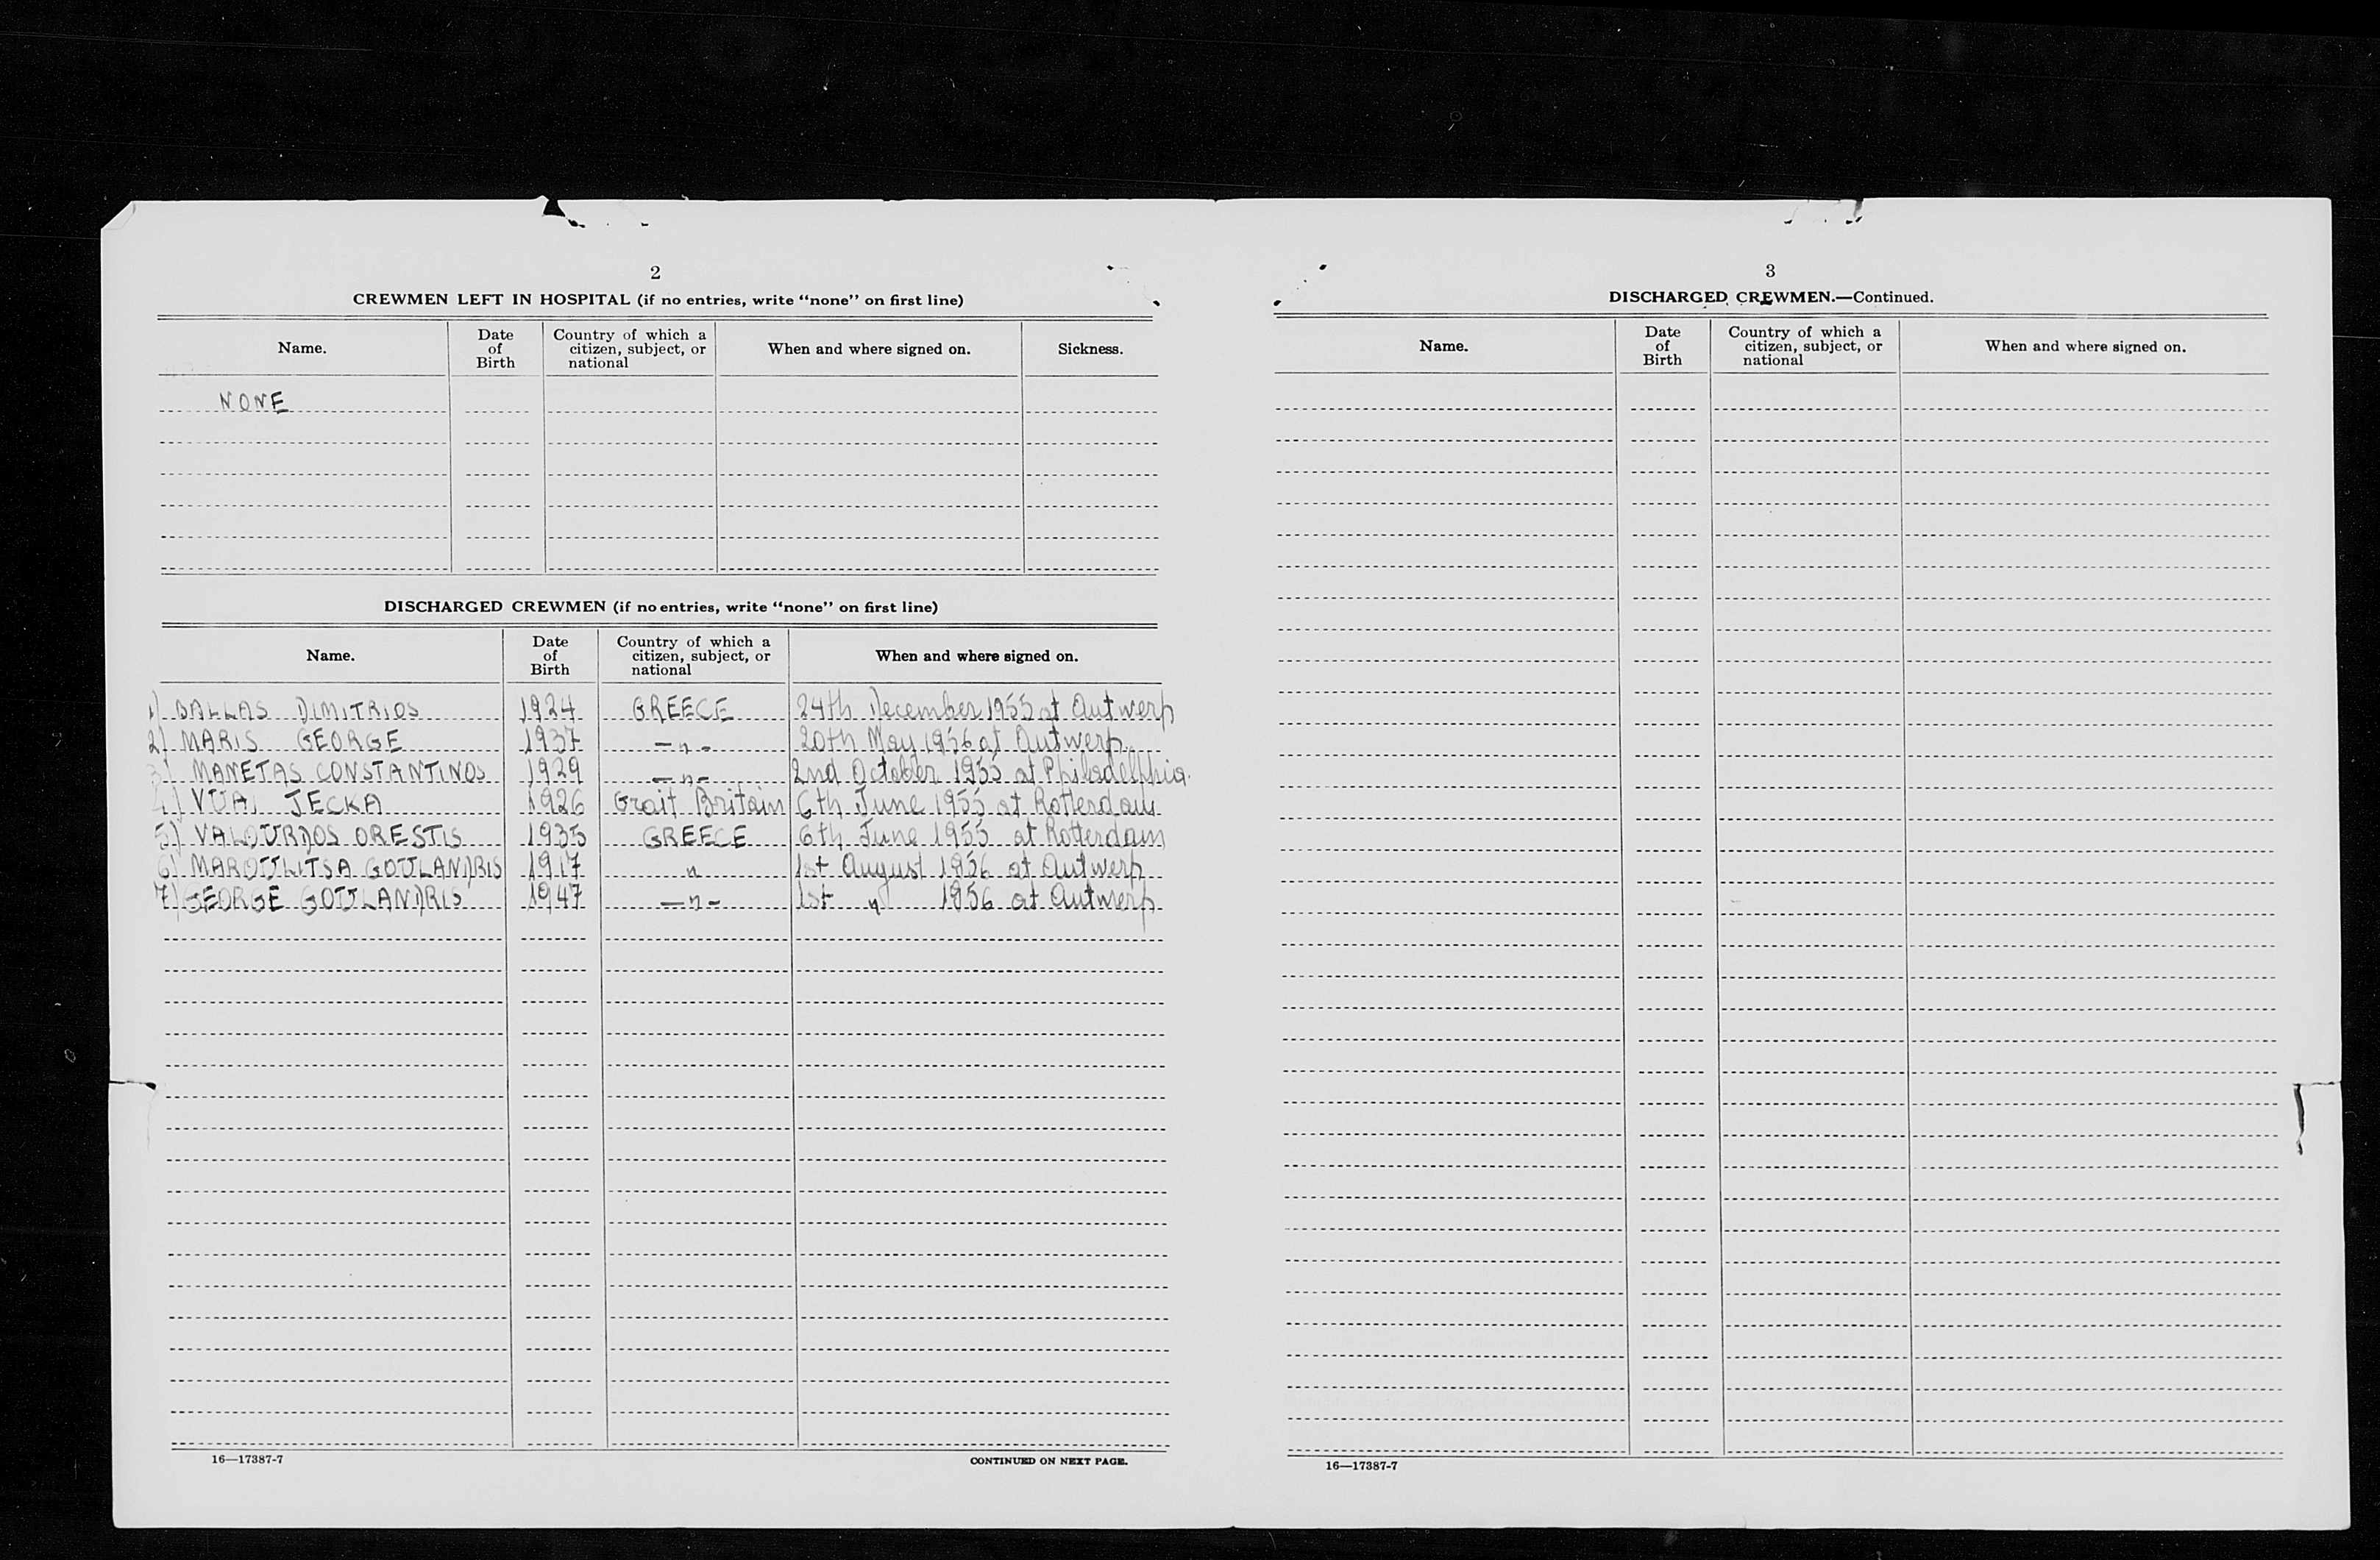 2
CREWMEN LEFT IN HOSPITAL (if no entries, write “none” on first line)
Name. Date of Birth Country of which a citizen, subject, or national When and where signed on. Sickness.
NONE
DISCHARGED CREWMEN (if no entries, write “none” on first line)
Name. Date of Birth Country of which a citizen, subject, or national When and where signed on.
1) BALLAS DIMITRIOS 1924 GREECE 24th December 1955 at Antwerp
2) MARIS GEORGE 1937 —"- 20th May 1956 at Antwerp
3) MANETAS CONSTANTINOS 1929 —"- 2nd October 1955 at Philadelphia
4) VUAI JECKA 1926 Grait Britain 6th June 1955 at Rotterdam
5) VALOURDOS ORESTIS 1935 GREECE 6th June 1955 at Rotterdam
6) MAROULITSA GOULANDRIS 1917 " 1st August 1956 at Antwerp
7) GEORGE GOULANDRIS 1947 —"- 1st " 1956 at Antwerp
16—17387-7 CONTINUED ON NEXT PAGE.
3
DISCHARGED CREWMEN.—Continued.
Name. Date of Birth Country of which a citizen, subject, or national When and where signed on.
16—17387-7